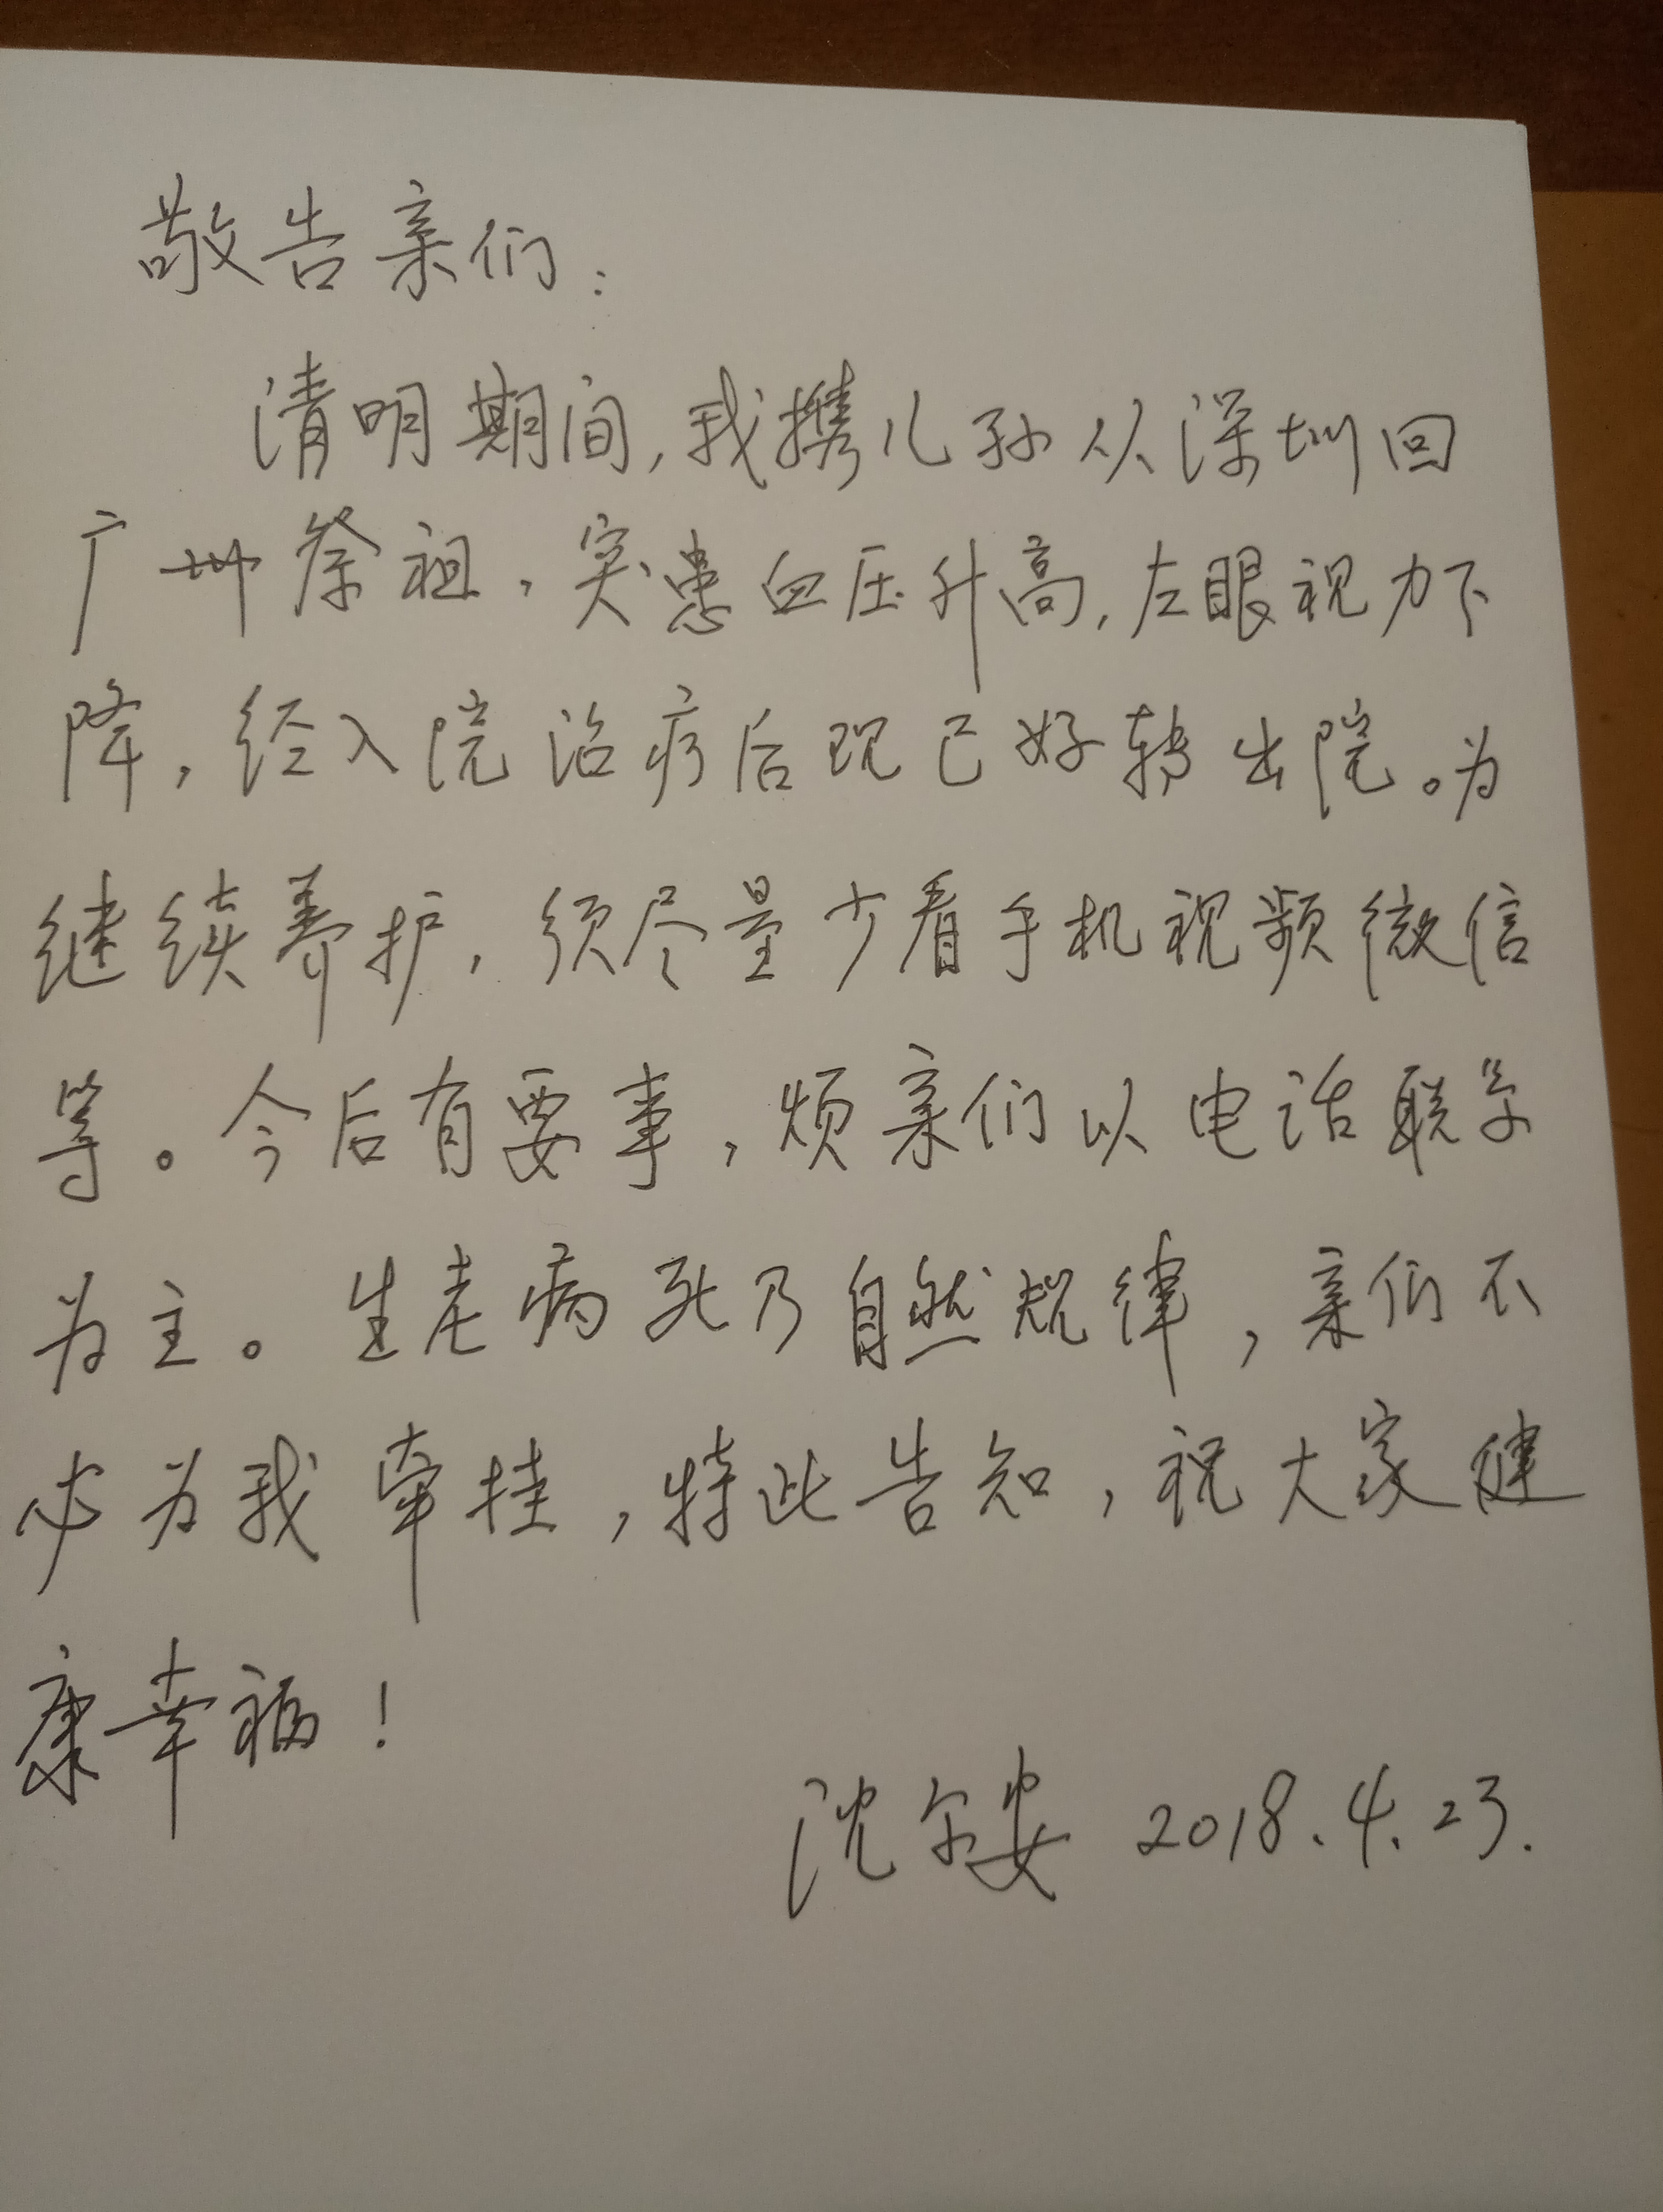 敬告亲们：
清明期间，我携儿孙从深圳回
广州祭祖，突患血压升高，左眼视力下
降，经入院治疗后现已好转出院。为
继续养护，须尽量少看手机视频微信
等。今后有要事，烦亲们以电话联系
为主。生老病死乃自然规律，亲们不
必为我牵挂，特此告知，祝大家健
康幸福！
沈尔安 2018.4.23.